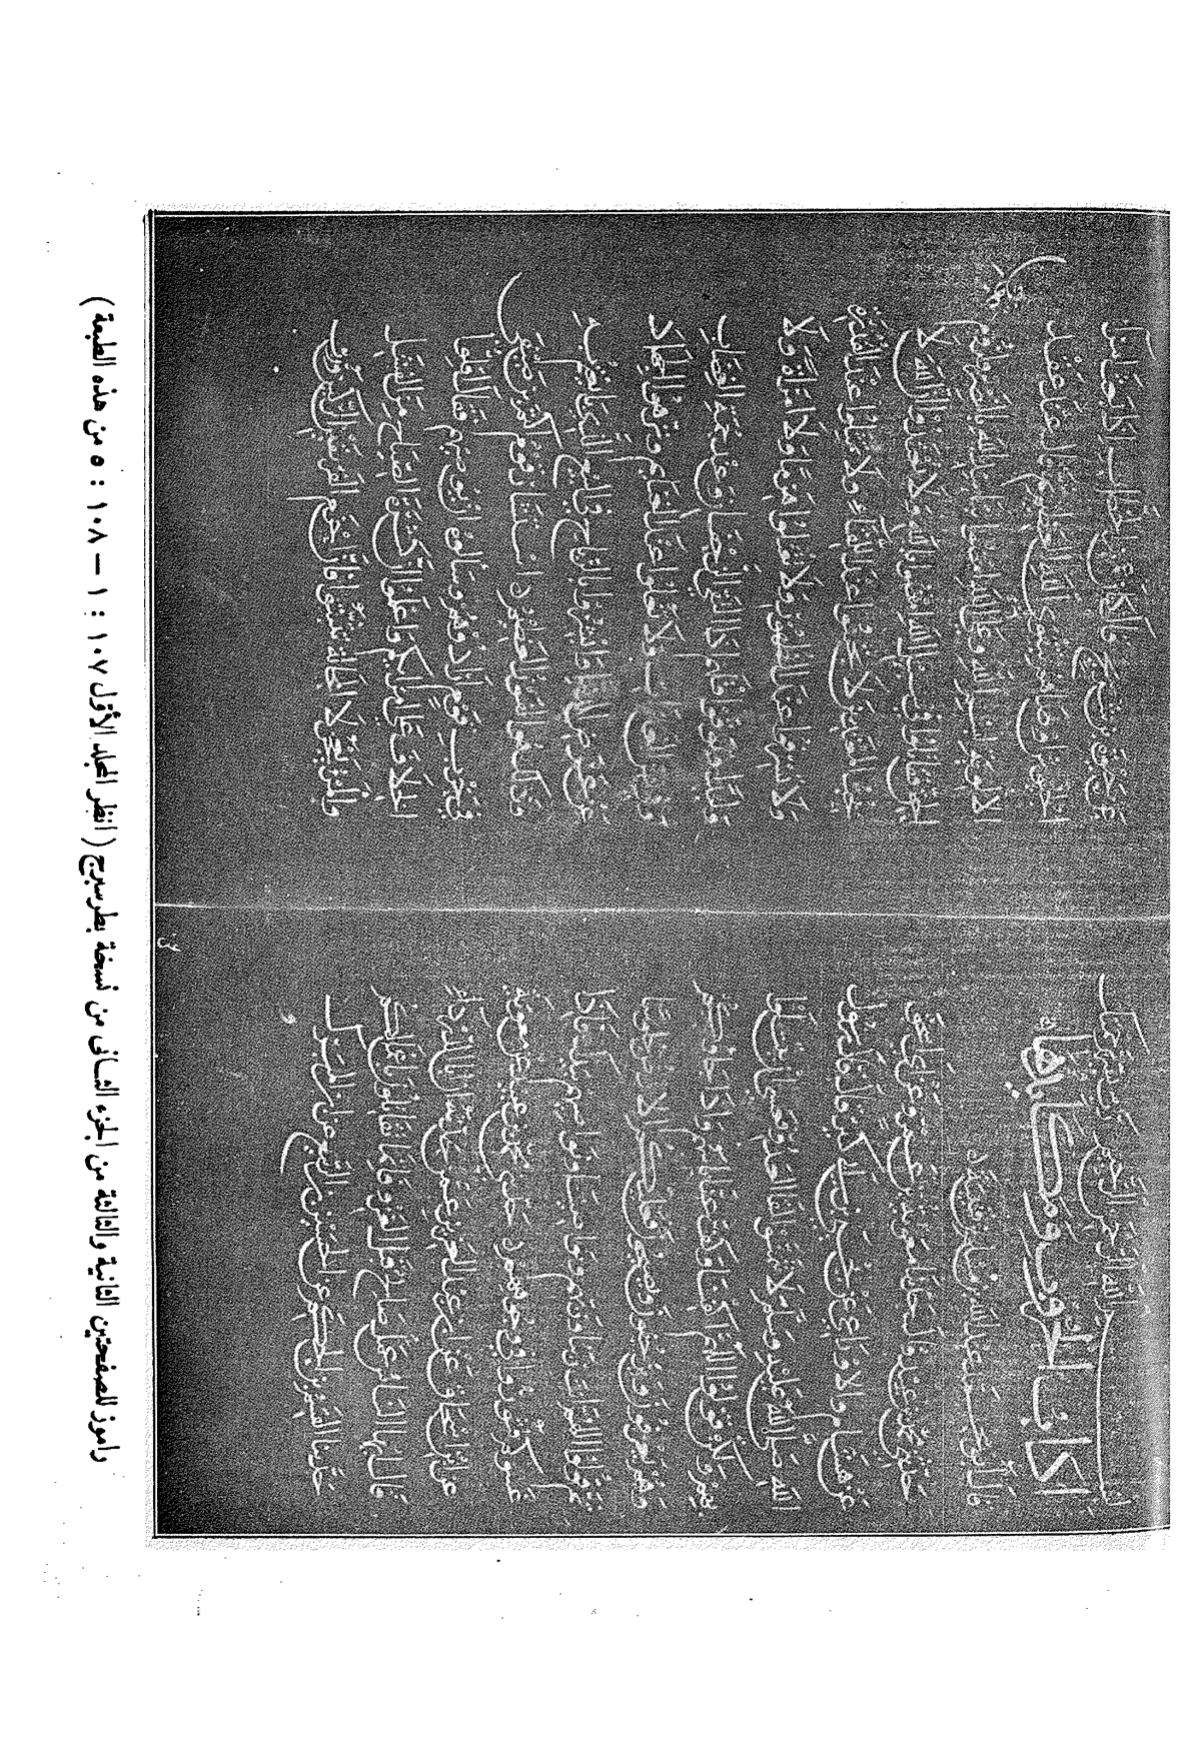 بسم الله الرحمن الرحيم رب يسر
كتاب الحروب ومكائدها
قال أبو محمد عبد الله بن مسلم بن قتيبة
حدثني محمد بن عبيد قال حدثنا معوية بن عمرو عن أبي إسحق
عن هشام والأوزاعي عن يحيى بن أبي كثير قال قال رسول
الله صلى الله عليه وسلم لا تتمنوا لقاء العدو فعسى أن تبتلوا
بهم ولكن قولوا اللهم اكفنا وكف عنا بأسهم وإذا جاؤوكم
وهم يعزفون ويزحفون ويصيحون فعليكم الأرض جلوسا
ثم قولوا اللهم أنت ربنا وربهم ونواصينا ونواصيهم بيدك فإذا
غشوكم فثوروا في وجوههم حدثني محمد بن عبيد عن معوية
عن أبي إسحق عن سعيد بن عبد العزيز عمن حدثه أن أبا الدرداء
قال أيها الناس عمل صالح قبل الغزو فإنما تقاتلون بأعمالكم
حدثنا القسم بن الحكم عن الحسن بن الربيع عن ابن المبرك
عن حيوة بن شريح قال كان عمر بن الخطاب إذا بعث
الجيوش أوصاهم بتقوى الله العظيم ثم قال عند عقد
الألوية بسم الله وعلى عون الله وامضوا بتأييد الله بالنصر ولزوم
الحق والصبر فقاتلوا في سبيل الله من كفر بالله ولا تعتدوا إن الله لا
يحب المعتدين لا تجبنوا عند اللقاء ولا تمثلوا عند القدرة
ولا تسرفوا عند الظهور ولا تقتلوا هرما ولا امرأة ولا
وليدا وتوقوا قتلهم إذا التقى الزحفان وعند حمة النهضات
وفي شن الغارات ولا تغلوا عند الغنائم ونزهوا الجهاد
عن عرض الدنيا وأبشروا بالرباح في البيع الذي بايعتم به
وذلك هو الفوز العظيم استشار قوم أكثم بن صيفي
في حرب قوم أرادوهم وسألوه أن يوصيهم فقال أقلوا
الخلاف على أمرائكم واعلموا أن كثرة الصياح من الفشل
والمرء يعجز لا المحالة تثبتوا فإن أحزم الفريقين الركين ورب
راموز للصفحتين الثانية والثالثة من الجزء الثانى من نسخة بطرسبرج ( انظر المجلد الأوّل ١٠٧ : ١ — ١٠٨ : ٥ من هذه الطبعة )